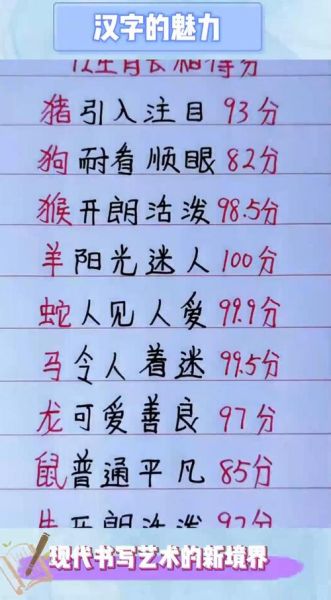 汉字的魅力
十二生肖长相得分
猪引入注目 93分
狗耐看顺眼 82分
猴开朗活泼 98.5分
羊阳光迷人 100分
蛇人见人爱 99.9分
马令人着迷 99.5分
龙可爱善良 97分
鼠普通平凡 85分
牛开朗活泼 92分
现代书写艺术的新境界